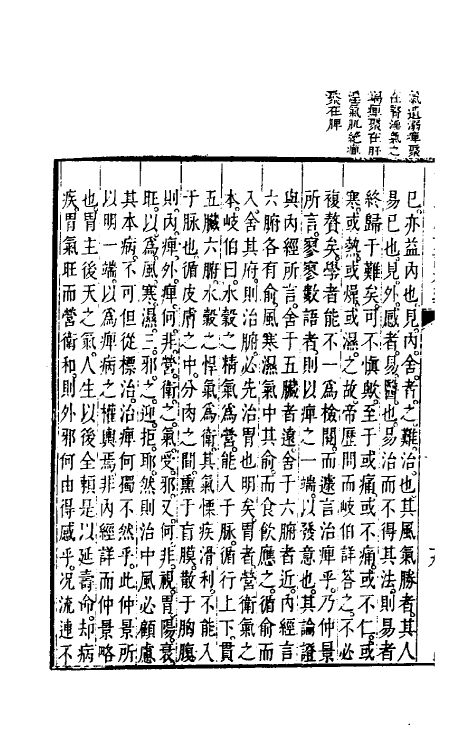 氣遺溺痺聚
在腎淫氣乏
竭痺聚在肝
淫氣肌絶痺
聚在脾
已亦益內也見內舍者之難治也其風氣勝者其人
易已也見外感者易醫也易治而不得其法則易者
終歸于難矣可不慎歟至于或痛或不痛或不仁或
寒或熱或燥或濕之故帝歷問而岐伯詳答之不必
複贅矣學者能不一爲檢閱而遽言治痺乎乃仲景
所言寥寥數語者則以痺之一端以發意也其論證
與內經所言舍于五臟者遠舍于六腑者近內經言
六腑各有俞風寒濕氣中其俞而食飲應之循俞而
入舍其府則治腑必先治胃也明矣胃者營衛氣之
本岐伯曰水穀之精氣爲營能入于脉循行上下貫
五臟六腑水穀之悍氣爲衛其氣慓疾滑利不能入
于脉也循皮膚之中分肉之間熏于肓膜散于胸腹
則內痺外痺何非營衛之氣受邪又何非視胃陽衰
旺以爲風寒濕三邪之迎拒耶然則治中風必顧慮
其本病不可但從標治治痺何獨不然乎此仲景所
以明一端以爲痺病之權輿焉非內經詳而仲景略
也胃主後天之氣人生以後全頼是以延壽命却病
疾胃氣旺而營衛和則外邪何由得感乎况流連不